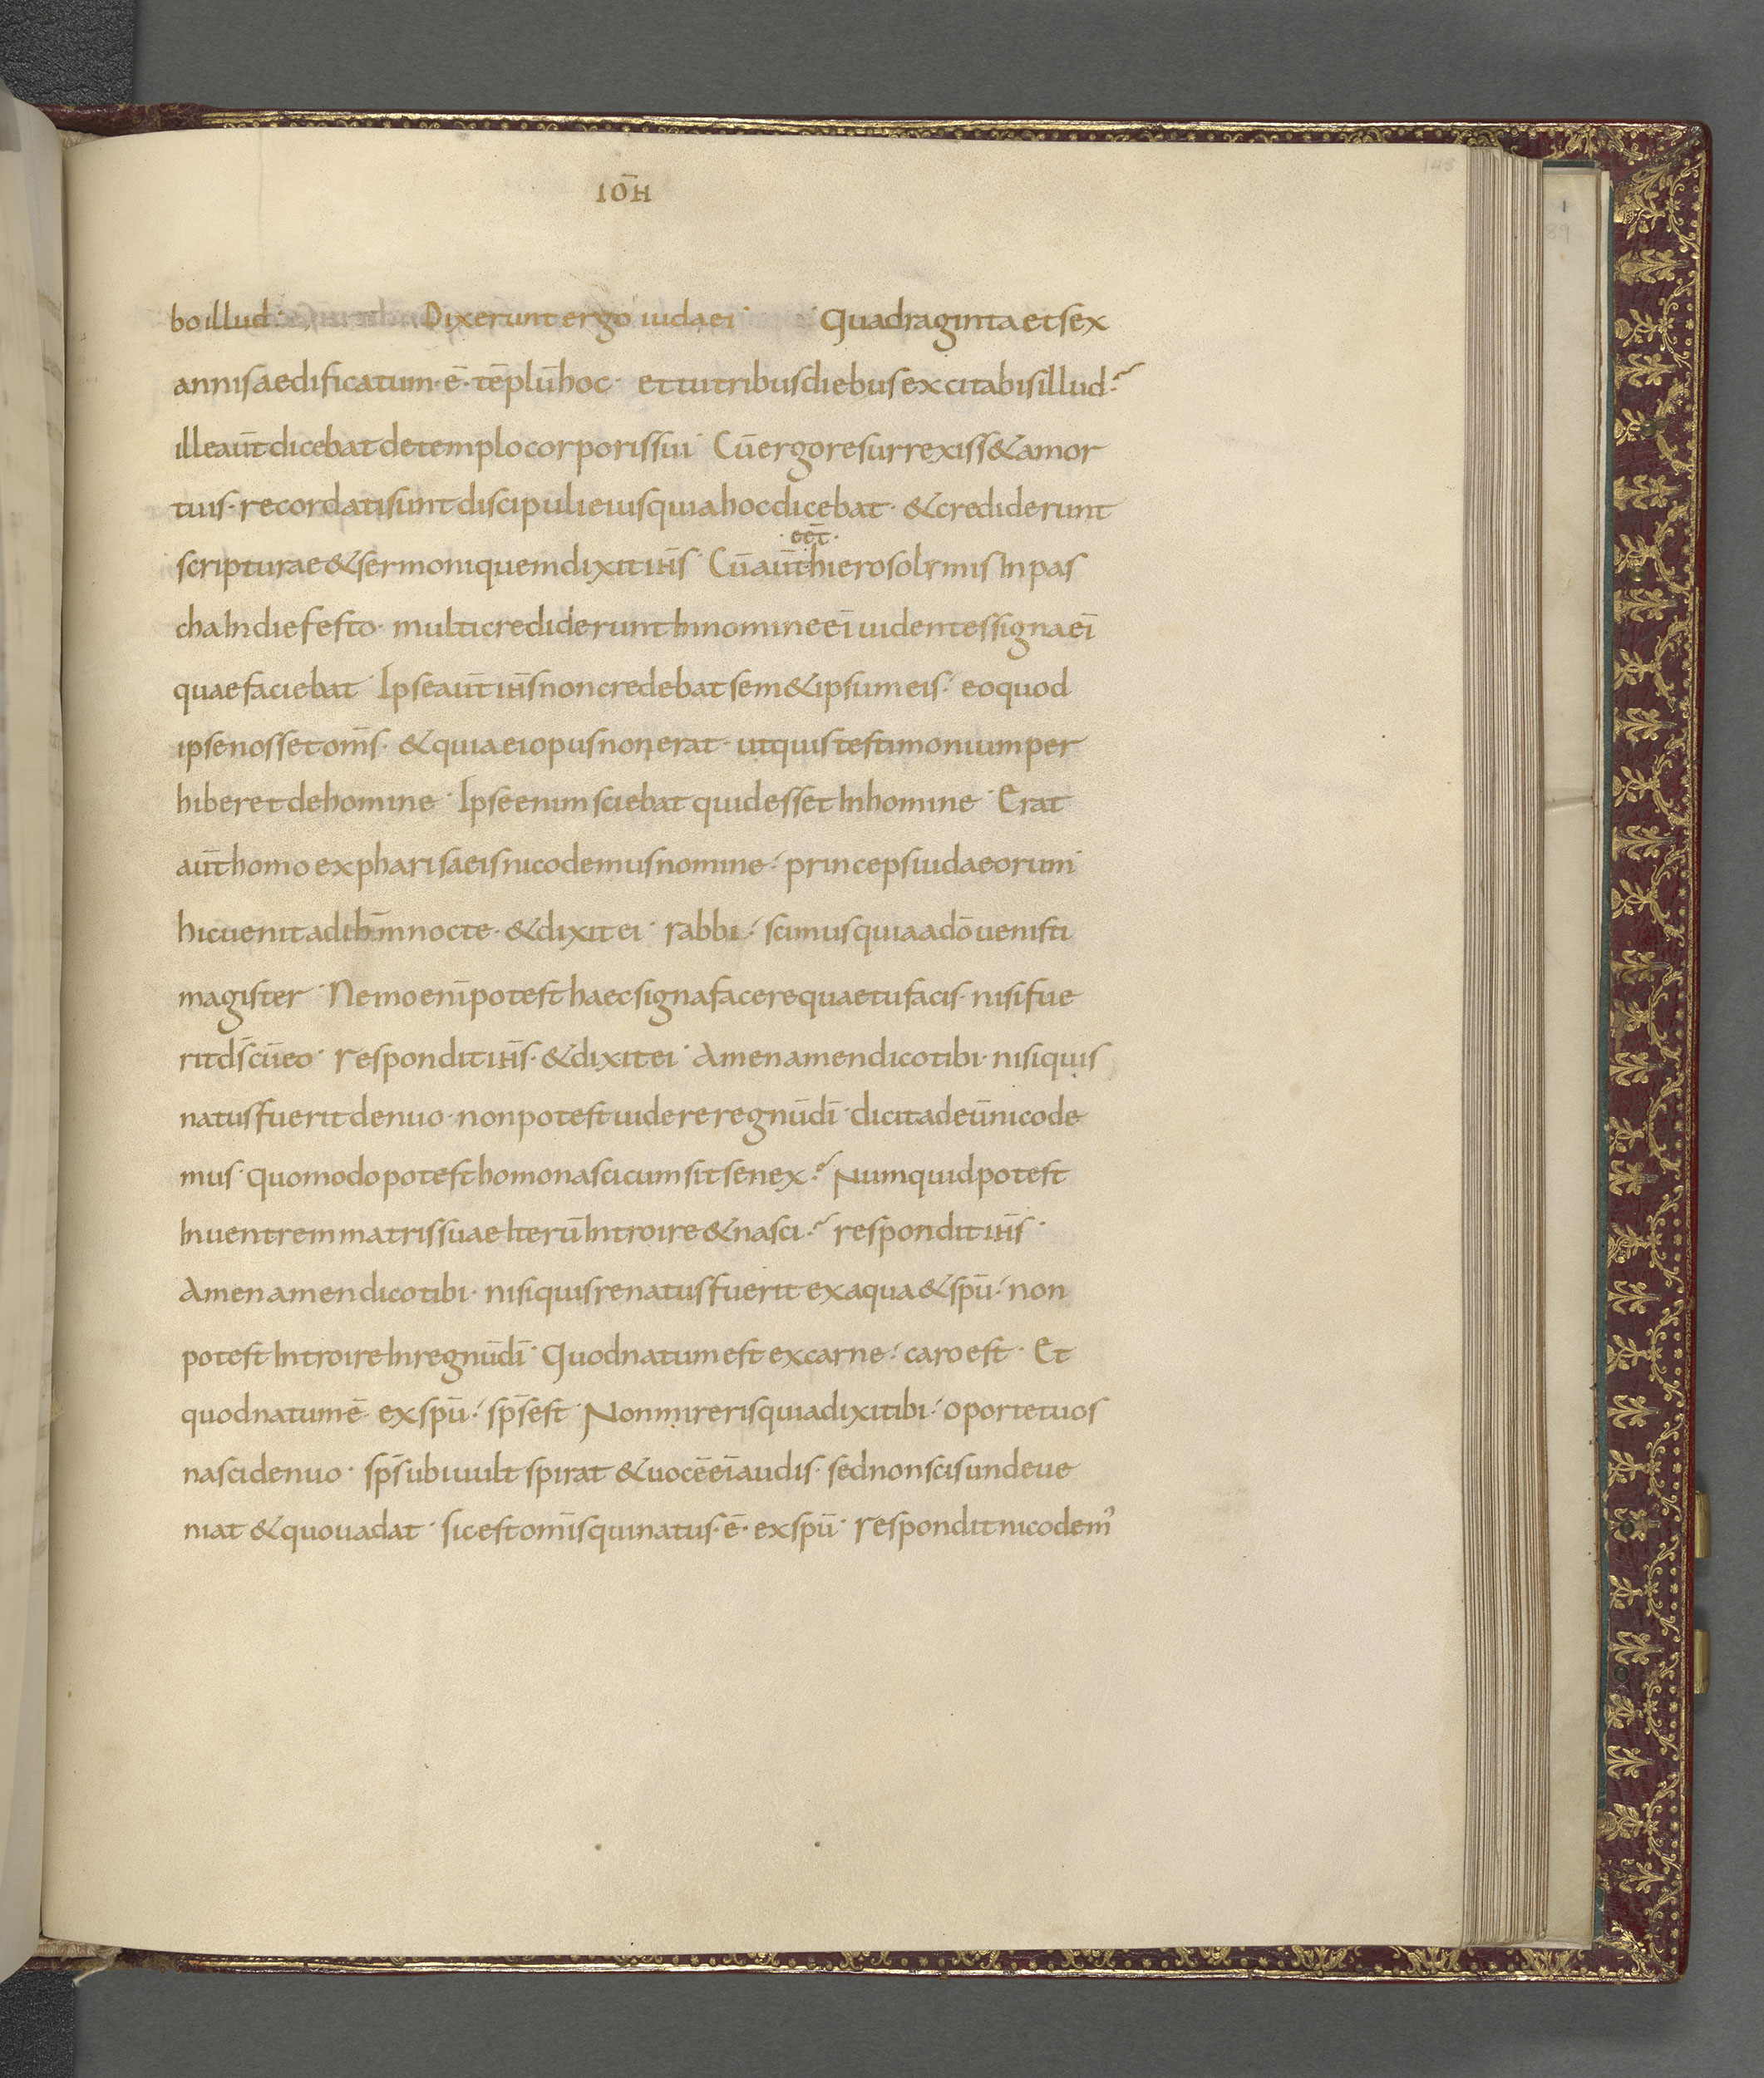 IōH
145
1
89
bo illud · Dixerunt ergo iudaei · Quadraginta et sex
annis aedificatum · ē · tēplū hoc · et tu tribus diebus excitabis illud ·~
ille aūt dicebat de templo corporis sui · Cū ergo resurrexiss& a mor
tuis · recordati sunt discipuli eius quia hoc dicebat · & crediderunt
· eēt ·
scripturae & sermoni quem dixit ihs̄ · Cū aūt hierosolymis In pas
cha In die festo · multi crediderunt In nomine eī uidentes signa eī
quae faciebat · Ipse aūt ihs̄ non credebat sem&ipsum eis ·/ eo quod
ipse nosset om̄s · & quia ei opus non erat · ut quis testimonium per
hiberet de homine · Ipse enim sciebat quid esset In homine · Erat
aūt homo ex pharisaeis nicodemus nomine ·/ princeps iudaeorum ·
hic uenit ad ihm̄ nocte · & dixit ei · rabbi ·/ scimus quia a dō uenisti
magister · Nemo enī potest haec signa facere quae tu facis · nisi fue
rit ds̄ cū eo · respondit ihs̄ · & dixit ei · Amen amen dico tibi · nisi quis
natus fuerit denuo · non potest uidere regnū dī · dicit ad eū nicode
mus · quomodo potest homo nasci cum sit senex ·~ Numquid potest
In uentrem matris suae Iterū Introire & nasci ·~ respondit ihs̄ ·
Amen amen dico tibi · nisi quis renatus fuerit ex aqua & spū ·/ non
potest Introire In regnū dī · Quod natum est ex carne ·/ caro est · Et
quod natum ē ex spū ·/ sps̄ est · Non mireris quia dixi tibi ·/ oportet uos
nasci denuo · sps̄ ubi uult spirat & uocē eī audis · sed non scis unde ue
niat & quo uadat · sic est om̄is qui natus · ē · ex spū · respondit nicodem᾽